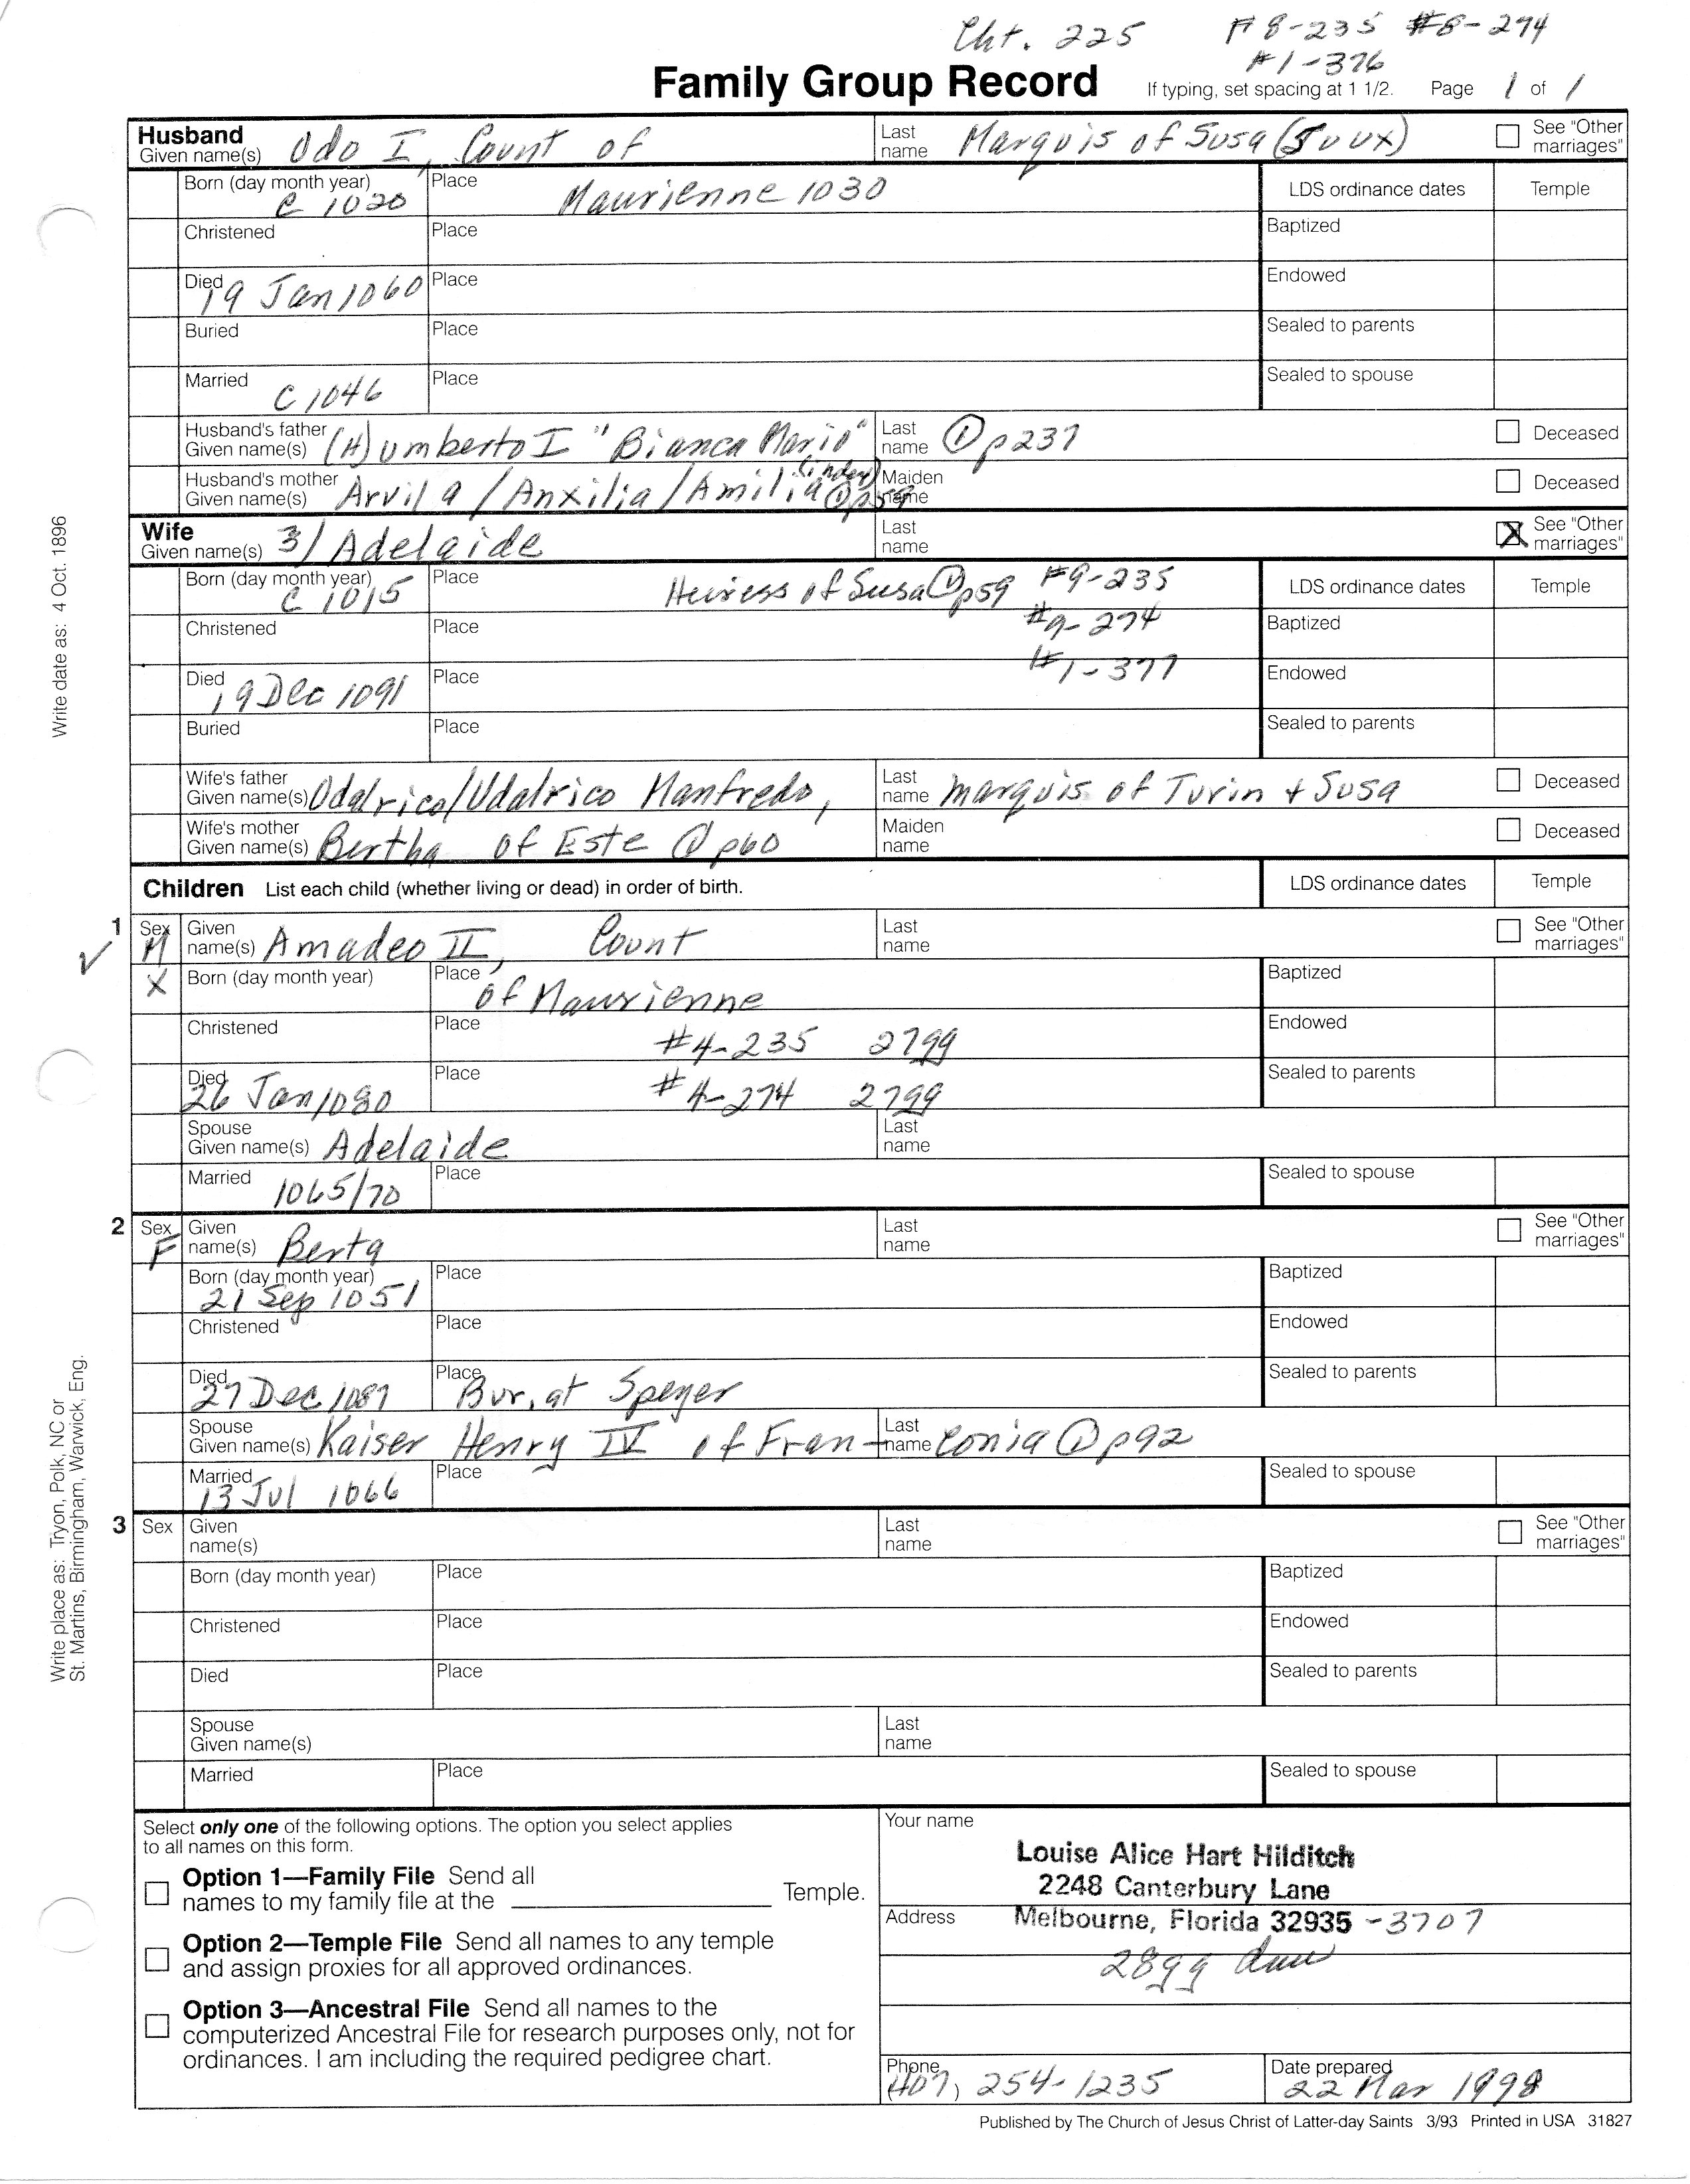 Cht. 225 #8-235 #8-274
#1-376
Family Group Record If typing, set spacing at 1 1/2. Page 1 of 1
Husband
Given name(s) Odo I, Count of Last name Marquis of Susa (Joux) See "Other marriages"
Born (day month year) C 1020 Place Maurienne 1030 LDS ordinance dates Temple
Christened Place Baptized
Died 19 Jan 1060 Place Endowed
Buried Place Sealed to parents
Married C 1046 Place Sealed to spouse
Husband's father Given name(s) (H)umberto I "Bianca Mario" Last name ① p237 Deceased
Husband's mother Given name(s) Arvila/Anxilia/Amilia (index) ① p59 Maiden name Deceased
Wife
Given name(s) 3/ Adelaide Last name See "Other marriages"
Born (day month year) C 1015 Place Heiress of Susa ① p59 #9-235 LDS ordinance dates Temple
Christened Place #9-274 Baptized
Died 19 Dec 1091 Place #1-377 Endowed
Buried Place Sealed to parents
Wife's father Given name(s) Odalrico/Udalrico Manfredo, Last name marquis of Turin + Susa Deceased
Wife's mother Given name(s) Bertha of Este ① p60 Maiden name Deceased
Children List each child (whether living or dead) in order of birth. LDS ordinance dates Temple
1 Sex M Given name(s) Amadeo II, Count Last name See "Other marriages"
X Born (day month year) Place of Maurienne Baptized
Christened Place #4-235 2799 Endowed
Died 26 Jan 1080 Place #4-274 2799 Sealed to parents
Spouse Given name(s) Adelaide Last name
Married 1065/70 Place Sealed to spouse
2 Sex F Given name(s) Berta Last name See "Other marriages"
Born (day month year) 21 Sep 1051 Place Baptized
Christened Place Endowed
Died 27 Dec 1087 Place Bur. at Speyer Sealed to parents
Spouse Given name(s) Kaiser Henry IV of Fran- Last name conia ① p92
Married 13 Jul 1066 Place Sealed to spouse
3 Sex Given name(s) Last name See "Other marriages"
Born (day month year) Place Baptized
Christened Place Endowed
Died Place Sealed to parents
Spouse Given name(s) Last name
Married Place Sealed to spouse
Write date as: 4 Oct. 1896
Write place as: Tryon, Polk, NC or
St. Martins, Birmingham, Warwick, Eng.
Select only one of the following options. The option you select applies
to all names on this form.
Option 1—Family File Send all
names to my family file at the Temple.
Option 2—Temple File Send all names to any temple
and assign proxies for all approved ordinances.
Option 3—Ancestral File Send all names to the
computerized Ancestral File for research purposes only, not for
ordinances. I am including the required pedigree chart.
Your name
Louise Alice Hart Hilditch
2248 Canterbury Lane
Address Melbourne, Florida 32935 -3707
28gg
Phone 407) 254-1235 Date prepared 22 Mar 1998
Published by The Church of Jesus Christ of Latter-day Saints 3/93 Printed in USA 31827